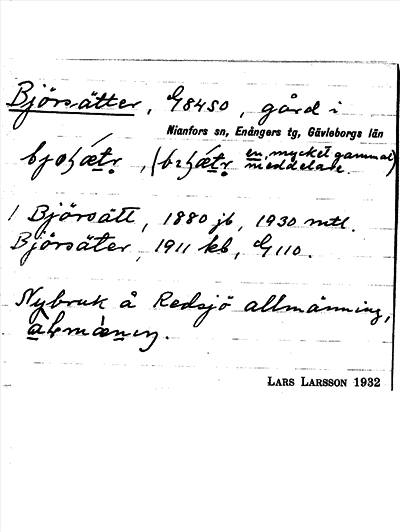 Björsätter, G84SO, gård i
Nianfors sn, Enångers tg, Gävleborgs län
en, mycket gammal)
meddelare.
1 Björsätt, 1880 jb, 1930 mtl.
Björsäter, 1911 kb, G110.
Nybruk å Redsjö allmänning,
LARS LARSSON 1932